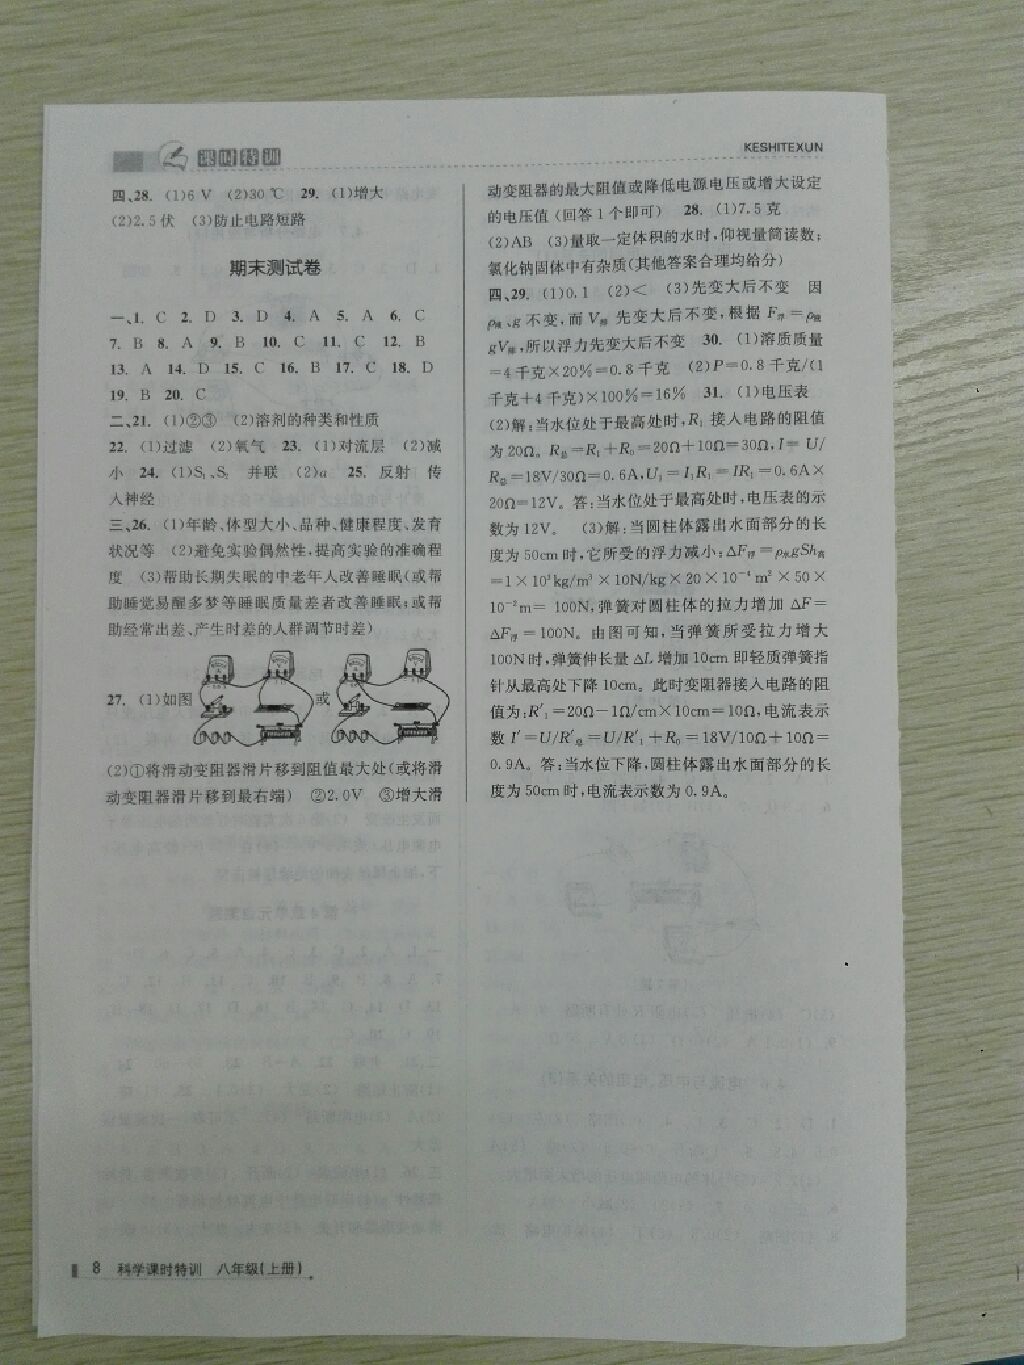 课时特训
KESHITEXUN
四、28. (1)6 V (2)30 ℃ 29. (1)增大
(2)2.5 伏 (3)防止电路短路
期末测试卷
一、1. C 2. D 3. D 4. A 5. A 6. C
7. B 8. A 9. B 10. C 11. C 12. B
13. A 14. D 15. C 16. B 17. C 18. D
19. B 20. C
二、21. (1)②③ (2)溶剂的种类和性质
22. (1)过滤 (2)氧气 23. (1)对流层 (2)减
小 24. (1)S₁、S₂ 并联 (2)a 25. 反射 传
入神经
三、26. (1)年龄、体型大小、品种、健康程度、发育
状况等 (2)避免实验偶然性,提高实验的准确程
度 (3)帮助长期失眠的中老年人改善睡眠(或帮
助睡觉易醒多梦等睡眠质量差者改善睡眠;或帮
助经常出差、产生时差的人群调节时差)
27. (1)如图 或
(2)①将滑动变阻器滑片移到阻值最大处(或将滑
动变阻器滑片移到最右端) ②2.0V ③增大滑
动变阻器的最大阻值或降低电源电压或增大设定
的电压值(回答1个即可) 28. (1)7.5 克
(2)AB (3)量取一定体积的水时,仰视量筒读数;
氯化钠固体中有杂质(其他答案合理均给分)
四、29. (1)0.1 (2)< (3)先变大后不变 因
ρ液、g 不变,而 V排 先变大后不变,根据 F浮=ρ液
gV排,所以浮力先变大后不变 30. (1)溶质质量
=4千克×20%=0.8千克 (2)P=0.8千克/(1
千克+4千克)×100%=16% 31. (1)电压表
(2)解:当水位处于最高处时,R₁ 接入电路的阻值
为20Ω。R总=R₁+R₀=20Ω+10Ω=30Ω,I=U/
R总=18V/30Ω=0.6A,U₁=I₁R₁=IR₁=0.6A×
20Ω=12V。答:当水位处于最高处时,电压表的示
数为12V。 (3)解:当圆柱体露出水面部分的长
度为50cm时,它所受的浮力减小:△F浮=ρ水gSh露
=1×10³kg/m³×10N/kg×20×10⁻⁴m²×50×
10⁻²m=100N;弹簧对圆柱体的拉力增加 △F=
△F浮=100N。由图可知,当弹簧所受拉力增大
100N时,弹簧伸长量 △L 增加10cm即轻质弹簧指
针从最高处下降10cm。此时变阻器接入电路的阻
值为:R′₁=20Ω-1Ω/cm×10cm=10Ω,电流表示
数 I′=U/R′总=U/R′₁+R₀=18V/10Ω+10Ω=
0.9A。答:当水位下降,圆柱体露出水面部分的长
度为50cm时,电流表示数为0.9A。
8 科学课时特训 八年级(上册)